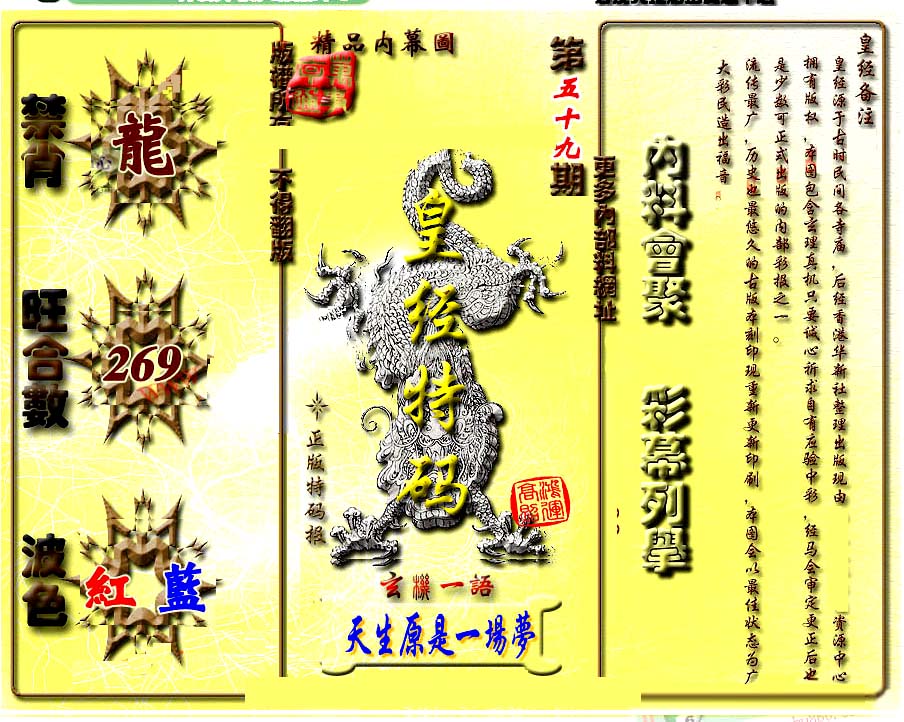 禁肖
龍
旺合數
269
波色
紅 藍
版權所有
不得翻版
精品內幕圖
第五十九期
皇经特码
正版特码报
鴻運高照
玄機一語
天生原是一場夢
更多內部料網址
內料會聚
彩幕列舉
皇经备注
皇经源于古时民间各寺庙，后经香港华新社整理出版现由 资源中心
拥有版权，本图包含玄理真机只要诚心祈求自有应验中彩，经马会审定更正后也
是少数可正式出版的内部彩报之一。
流传最广，历史也最悠久的古版本刻印现重新更新印刷，本图会以最佳状态为广
大彩民造出福音